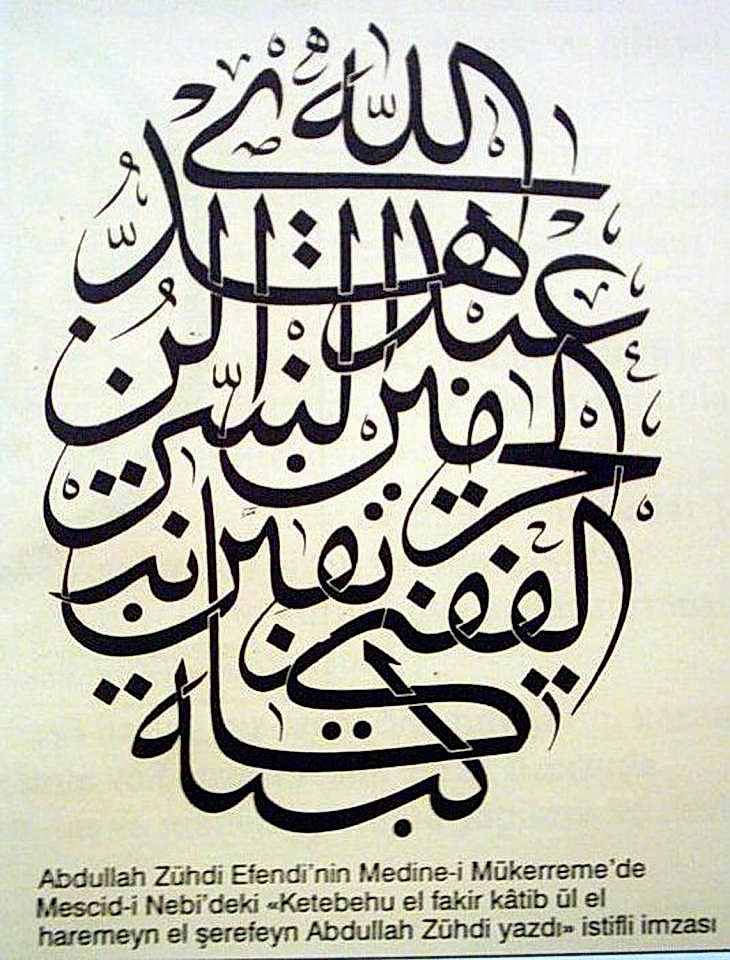 كتبه
الفقير
الحرمين
عبد
الله
Abdullah Zühdi Efendi'nin Medine-i Mükerreme'de
Mescid-i Nebi'deki «Ketebehu el fakir kâtib ül el
haremeyn el şerefeyn Abdullah Zühdi yazdı» istifli imzası